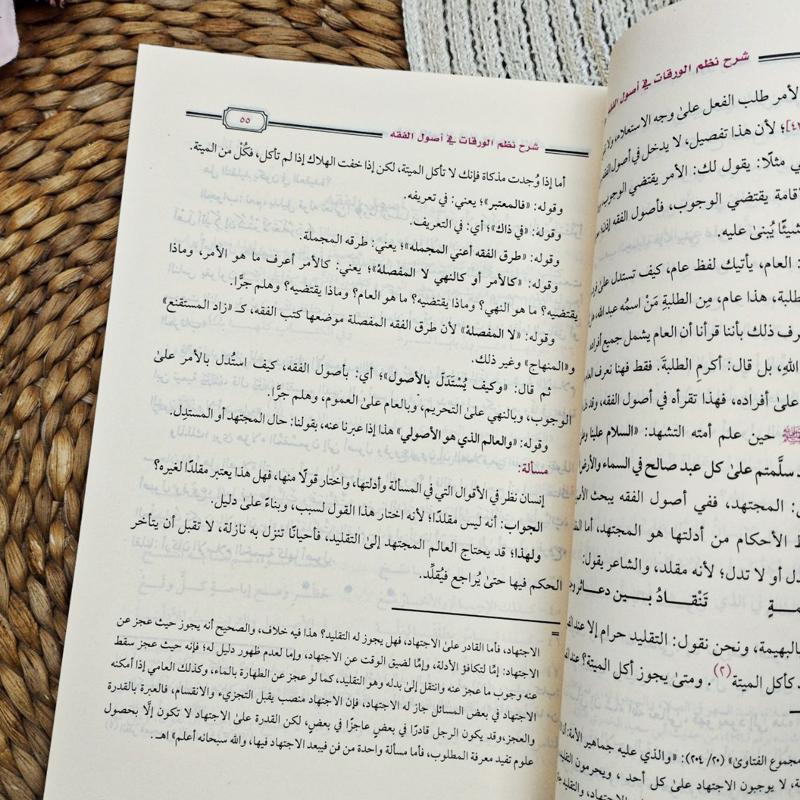 شرح نظم الورقات في أصول الفقه
الأمر طلب الفعل على وجه الاستعلاء، ولا
لأن هذا تفصيل، لا يدخل في أصول الفقه
مثلًا: يقول لك: الأمر يقتضي الوجوب
إقامة يقتضي الوجوب، فأصول الفقه
شيئًا يُبنى عليه.
العام، يأتيك لفظ عام، كيف تستدل على
هذا عام، مِن الطلبةِ مَنْ اسمُه عبد الله
ذلك بأننا قرأنا أن العام يشمل جميع أفراده
اللهِ، بل قال: أكرمِ الطلبةَ. فقط فهنا نعرف
على أفراده، فهذا تقرأه في أصول الفقه، وقد
ﷺ حين علم أمته التشهد: «السلام علينا
سلَّمتم على كل عبد صالح في السماء والأرض
المجتهد، ففي أصول الفقه يبحث
الأحكام من أدلتها هو المجتهد، أما
أو لا تدل؛ لأنه مقلد، والشاعر يقول:
تَنْقَادُ بــين
بالبهيمة، ونحن نقول: التقليد حرام إلا عند
كأكل الميتة(٢). ومتى يجوز أكل الميتة؟ عند
مجموع الفتاوى» (٢٠/ ٢٠٤): «والذي عليه جماهير الأمة:
لا يوجبون الاجتهاد على كل أحد، ويحرمون
شرح نظم الورقات في أصول الفقه
٥٥
أما إذا وُجدت مذكاة فإنك لا تأكل الميتة، لكن إذا خفت الهلاك إذا لم تأكل، فكُلْ من الميتة.
وقوله: «فالمعتبر»؛ يعني: في تعريفه.
وقوله: «في ذاك»؛ أي: في التعريف.
وقوله: «طرق الفقه أعني المجمله»؛ يعني: طرقه المجملة.
وقوله: «كالأمر أو كالنهي لا المفصلهْ»؛ يعني: كالأمر أعرف ما هو الأمر، وماذا
يقتضيه؟ ما هو النهي؟ وماذا يقتضيه؟ ما هو العام؟ وماذا يقتضيه؟ وهلم جرًّا.
وقوله: «لا المفصلهْ» لأن طرق الفقه المفصلة موضعها كتب الفقه، كـ «زاد المستقنع»
و«المنهاج» وغير ذلك.
ثم قال: «وكيف يُسْتَدَلُّ بالأصول»؛ أي: بأصول الفقه، كيف استُدل بالأمر على
الوجوب، وبالنهي على التحريم، وبالعام على العموم، وهلم جرًّا.
وقوله: «والعالم الذي هو الأصولي» هذا إذا عبرنا عنه، بقولنا: حال المجتهد أو المستدِل.
مسألة:
إنسان نظر في الأقوال التي في المسألة وأدلتها، واختار قولًا منها، فهل هذا يعتبر مقلدًا لغيره؟
الجواب: أنه ليس مقلدًا؛ لأنه اختار هذا القول لسبب، وبناءً على دليل.
ولهذا؛ قد يحتاج العالم المجتهد إلى التقليد، فأحيانًا تنزل به نازلة، لا تقبل أن يتأخر
الحكم فيها حتى يُراجع فيُقلِّد.
=
الاجتهاد، فأما القادر على الاجتهاد، فهل يجوز له التقليد؟ هذا فيه خلاف، والصحيح أنه يجوز حيث عجز عن
الاجتهاد: إمَّا لتكافؤ الأدلة، وإمَّا لضيق الوقت عن الاجتهاد، وإما لعدم ظهور دليل له؛ فإنه حيث عجز سقط
عنه وجوب ما عجز عنه وانتقل إلى بدله وهو التقليد، كما لو عجز عن الطهارة بالماء، وكذلك العامي إذا أمكنه
الاجتهاد في بعض المسائل جاز له الاجتهاد، فإن الاجتهاد منصب يقبل التجزيء والانقسام، فالعبرة بالقدرة
والعجز، وقد يكون الرجل قادرًا في بعضٍ عاجزًا في بعضٍ، لكن القدرة على الاجتهاد لا تكون إلَّا بحصول
علوم تفيد معرفة المطلوب، فأما مسألة واحدة من فن فيبعد الاجتهاد فيها، والله سبحانه أعلم» اهـ.